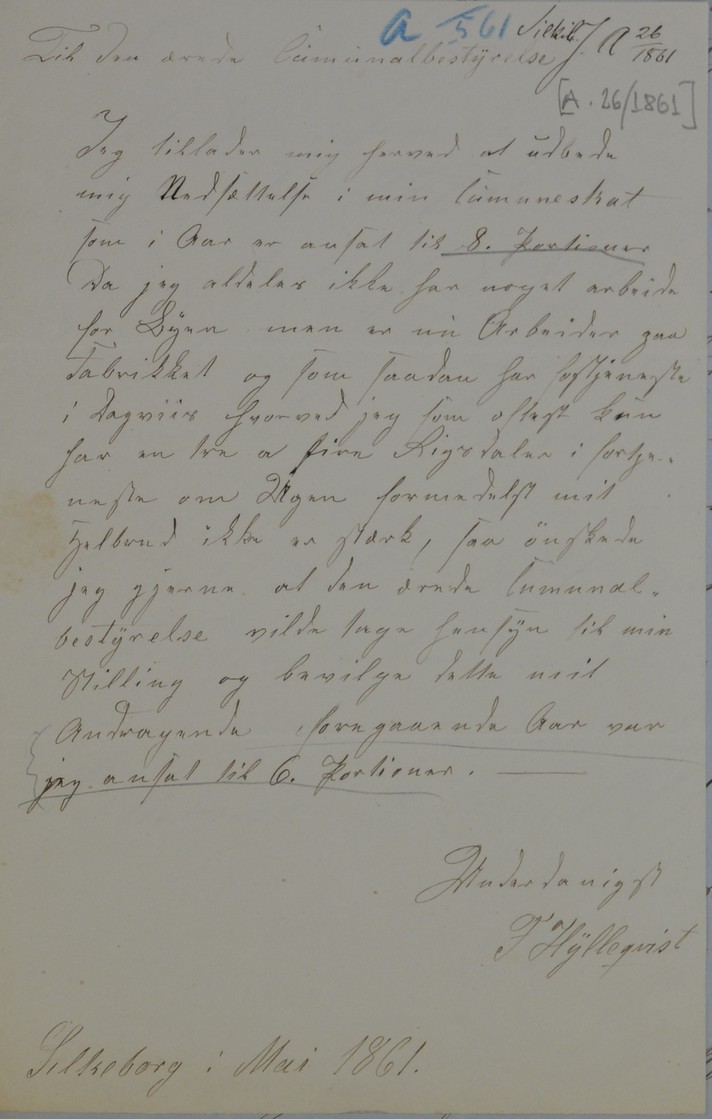 A 561 Silkib. J. A 26/1861
Til den ærede Cumunalbestyrelse
[A. 26/1861]
Jeg tillader mig herved at udbede
mig Nedsættelse i min Cumuneskat
som i Aar er ansat til 8. Portioner
Da jeg aldeles ikke har noget arbeide
for Byen men er nu Arbeider paa
Fabrikket og som saadan har fortjeneste
i Dagviis hvorved jeg som oftest kun
har en tre a fire Rigsdaler i fortje-
neste om Ugen formedelst mit
Helbred ikke er stærk, saa önskede
jeg gjerne at den ærede Cumunal-
bestyrelse vilde tage hensyn til min
Stilling og bevilge dette mit
Andragende foregaaende Aar var
jeg ansat til 6. Portioner.
Underdanigst
F Hylleqvist
Silkeborg i Mai 1861.